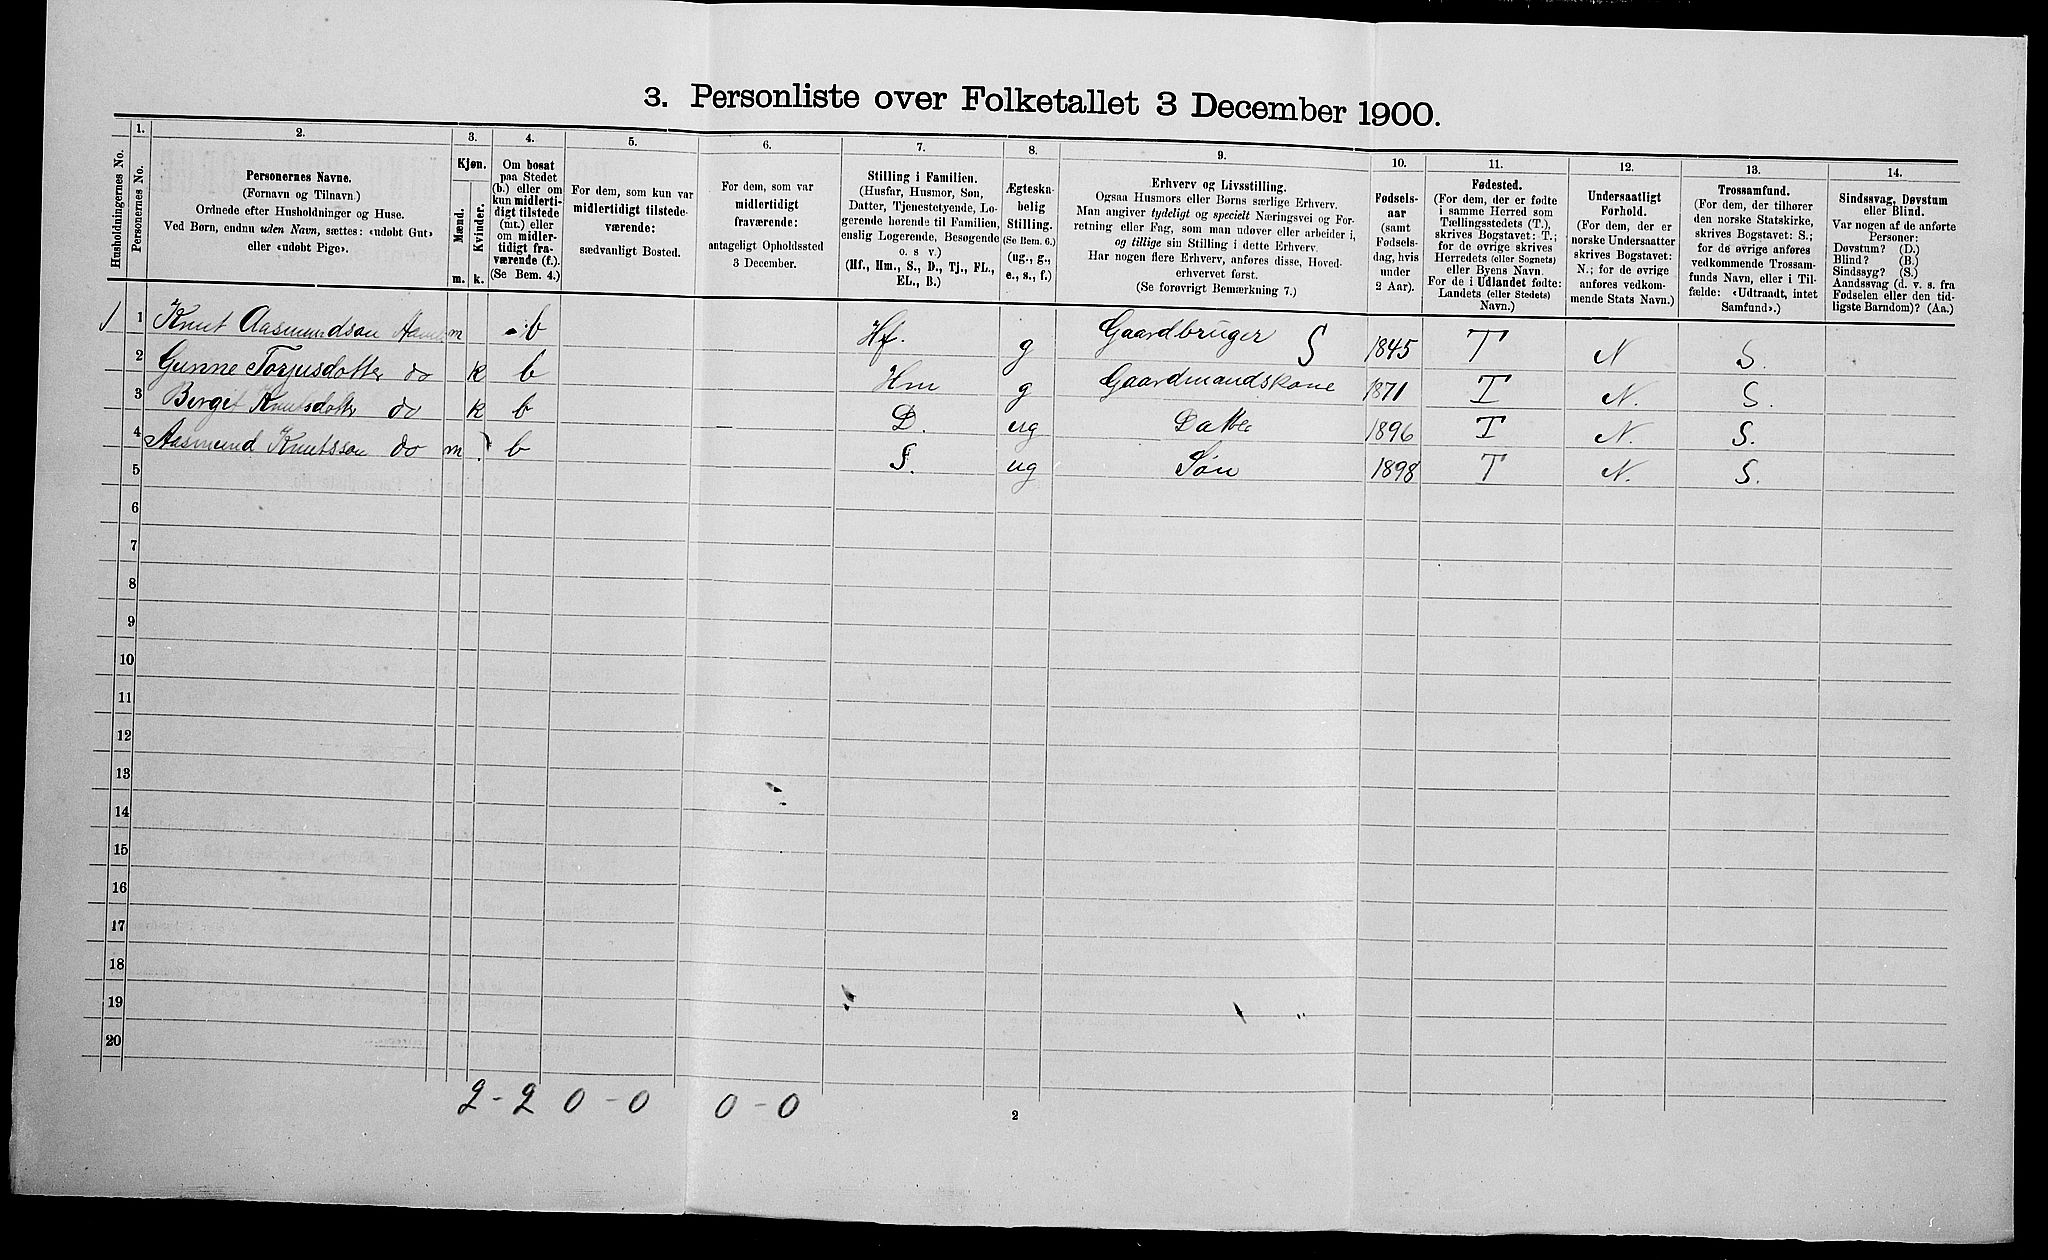 3. Personliste over Folketallet 3 December 1900.
Husholdningernes No.
1.
Personernes No.
2.
Personernes Navne.
(Fornavn og Tilnavn)
Ordnede efter Husholdninger og Huse.
Ved Børn, endnu uden Navn, sættes: «udøbt Gut»
eller «udøbt Pige».
3.
Kjøn.
Mænd.
Kvinder.
m. k.
4.
Om bosat
paa Stedet
(b.) eller om
kun midlerti-
digt tilstede
(mt.) eller
om midler-
tidigt fra-
værende (f.).
(Se Bem. 4.)
5.
For dem, som kun var
midlertidigt tilstede-
værende:
sædvanligt Bosted.
6.
For dem, som var
midlertidigt
fraværende:
antageligt Opholdssted
3 December.
7.
Stilling i Familien.
(Husfar, Husmor, Søn,
Datter, Tjenestetyende, Lo-
gerende hørende til Familien,
enslig Logerende, Besøgende
o. s v.)
(Hf., Hm., S., D., Tj., FL.,
EL., B.)
8.
Ægteska-
belig
Stilling.
(Se Bem. 6.)
(ug., g.,
e., s., f.)
9.
Erhverv og Livsstilling.
Ogsaa Husmors eller Børns særlige Erhverv.
Man angiver tydeligt og specielt Næringsvei og For-
retning eller Fag, som man udøver eller arbeider i,
og tillige sin Stilling i dette Erhverv.
Har nogen flere Erhverv, anføres disse, Hoved-
erhvervet først.
(Se forøvrigt Bemærkning 7.)
10.
Fødsels-
aar
(samt
Fødsels-
dag, hvis
under
2 Aar).
11.
Fødested.
(For dem, der er fødte
i samme Herred som
Tællingsstedets (T.),
skrives Bogstavet: T.;
for de øvrige skrives
Herredets (eller Sognets)
eller Byens Navn.
For de i Udlandet fødte:
Landets (eller Stedets)
Navn.)
12.
Undersaatligt
Forhold.
(For dem, der er
norske Undersaatter
skrives Bogstavet:
N.; for de øvrige
anføres vedkom-
mende Stats Navn.)
13.
Trossamfund.
(For dem, der tilhører
den norske Statskirke,
skrives Bogstavet: S.;
for de øvrige anføres
vedkommende Trossam-
funds Navn, eller i Til-
fælde: «Udtraadt, intet
Samfund».)
14.
Sindssvag, Døvstum
eller Blind.
Var nogen af de anførte
Personer:
Døvstum? (D.)
Blind? (B.)
Sindssyg? (S.)
Aandssvag (d. v. s. fra
Fødselen eller den tid-
ligste Barndom)? (Aa.)
1 1 Knut Aasmundson m b Hf. g Gaardbruger S 1845 T N S.
2 Gunne Torjusdotter do k b Hm g Gaardmandskone 1871 T N. S.
3 Berget Knutsdotter do k b D. ug Datter 1896 T N. S.
4 Aasmund Knutsson do m b S. ug Søn 1898 T N. S.
5
6
7
8
9
10
11
12
13
14
15
16
17
18
19
20
2 - 2 0 - 0 0 - 0
2